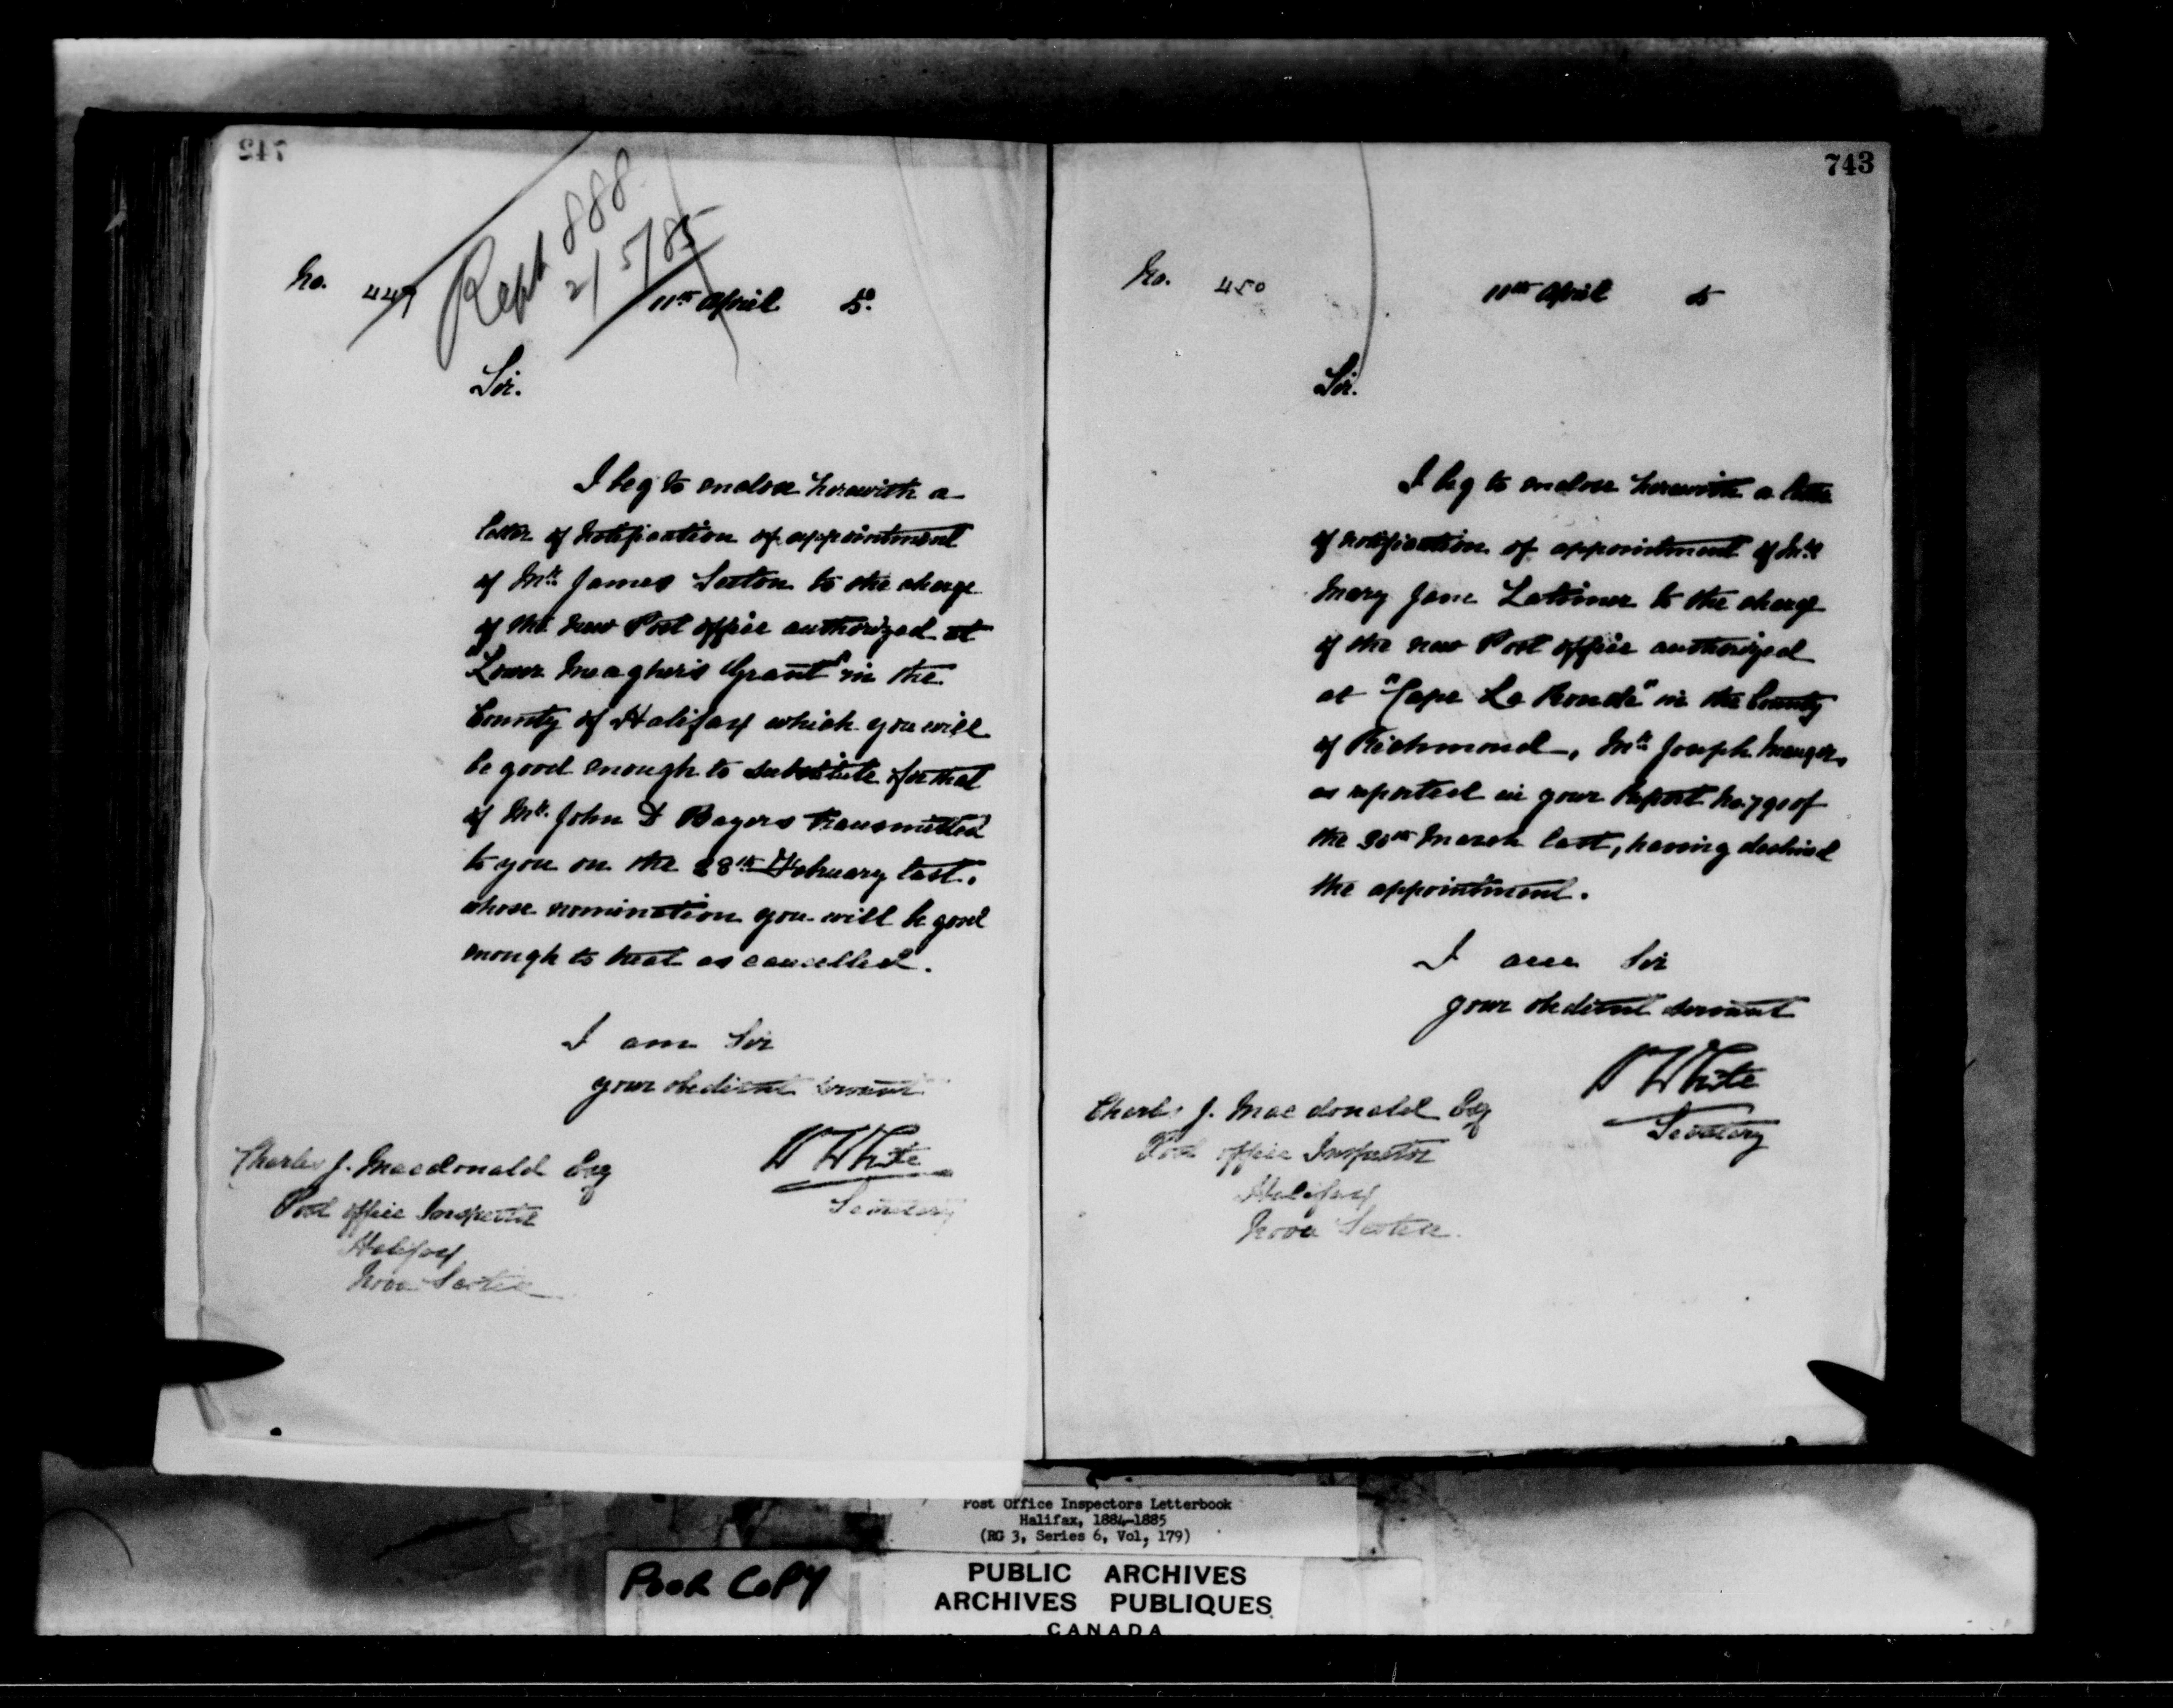 742
Rept 888
2/5/85
No. 449
11th April 5.
Sir.
I beg to enclose herewith a
letter of notification of appointment
of Mr. James Sexton to the charge
of the new Post office authorized at
"Lower Meagher's Grant" in the
County of Halifax which you will
be good enough to substitute for that
of Mr. John D Bayers transmitted
to you on the 28th February last,
whose nomination you will be good
enough to treat as cancelled.
I am Sir
your obedient servant
W White
Secretary
Charles J. Macdonald Esq
Post office Inspector
Halifax
Nova Scotia
743
No. 450
11th April 5
Sir.
I beg to enclose herewith a letter
of notification of appointment of
Mary Jane Latimer to the charge
of the new Post office authorized
at "Cape La Ronde" in the County
of Richmond, Mr. Joseph
as reported in your Report No. 790 of
the 30th March last, having declined
the appointment.
I am Sir
your obedient servant
W White
Secretary
Charles J. Macdonald Esq
Post office Inspector
Halifax
Nova Scotia.
Post Office Inspectors Letterbook
Halifax, 1884-1885
(RG 3, Series 6, Vol, 179)
POOR COPY
PUBLIC ARCHIVES
ARCHIVES PUBLIQUES
CANADA